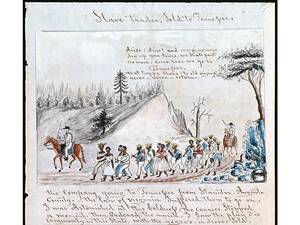 Slave trader, Sold to Tennessee,
Arise! Arise! and weep no more
dry up your tears, we shall part
no more, Come rose we go to
Tennessee,
that happy shore, to old virginia
never - never - return.
the Company going to Tennessee from Staunton, Augusta
County, the law of Virginia Suffered them to go on.
I was Astonished at this boldness, the carrier Stopped
a moment, then Ordered the march, I Saw the play it is
commonly in this State, with the negro's in droves Sold.